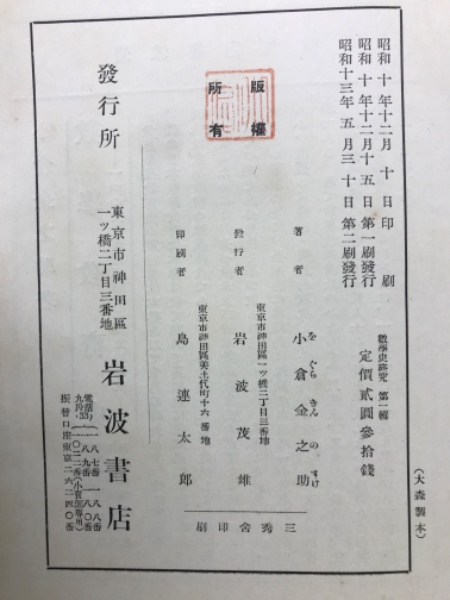 昭和十年十二月十日印刷
昭和十年十二月十五日第一刷發行
昭和十三年五月三十日第二刷發行
數學史研究 第一輯
定價貳圓參拾錢
版權
所有
著者 小倉金之助
を ぐら きん の すけ
東京市神田區一ッ橋二丁目三番地
發行者 岩波茂雄
東京市神田區美土代町十六番地
印刷者 島連太郎
三秀舍印刷
發行所
東京市神田區
一ッ橋二丁目三番地
岩波書店
振替口座東京二六二四〇番
(大森製本)